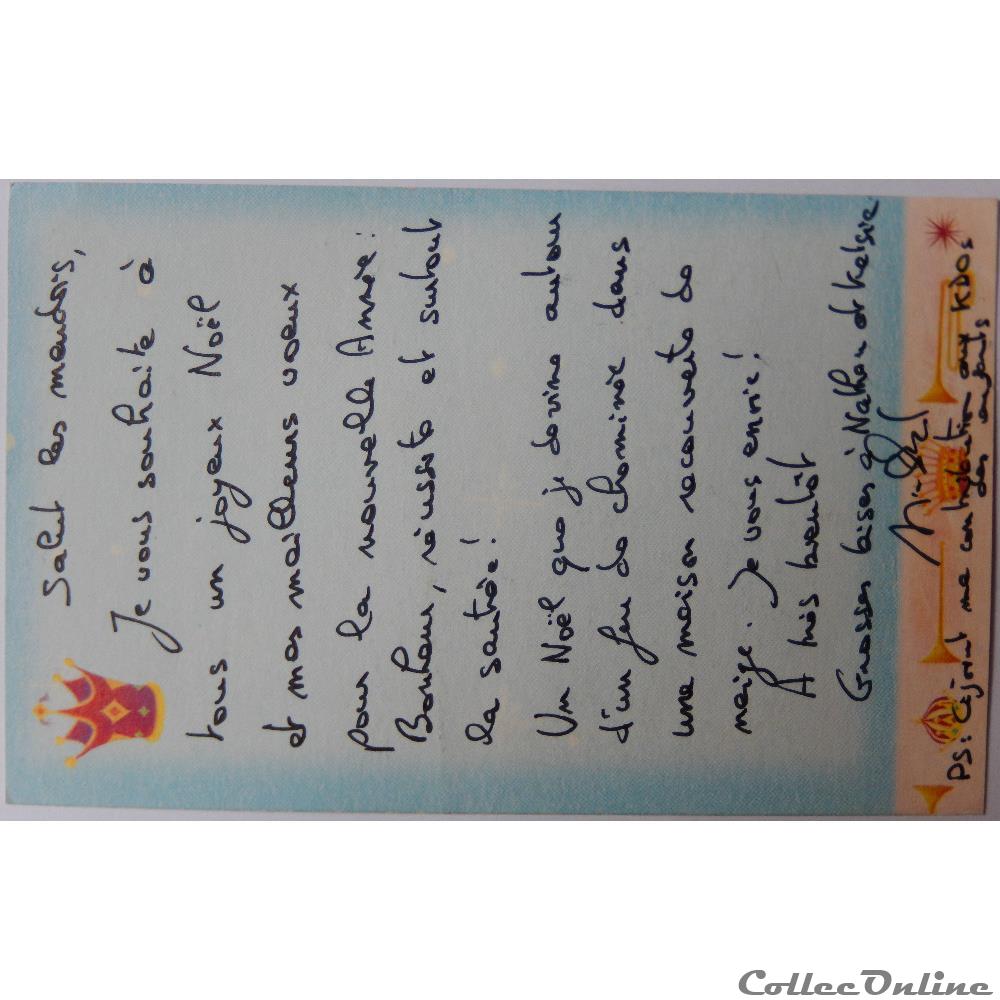 Salut les meudois,
Je vous souhaite à
tous un joyeux Noël
et mes meilleurs voeux
pour la nouvelle Année:
Bonheur, réussite et surtout
la santée!
Un Noël que je devine autour
d'un feu de cheminée dans
une maison recouverte de
neige. Je vous envie!
A très bientôt
Grosses bises à Nathan et Kelsie
PS: Ci-joint ma contribution aux KDOs
des enfants
CollecOnline